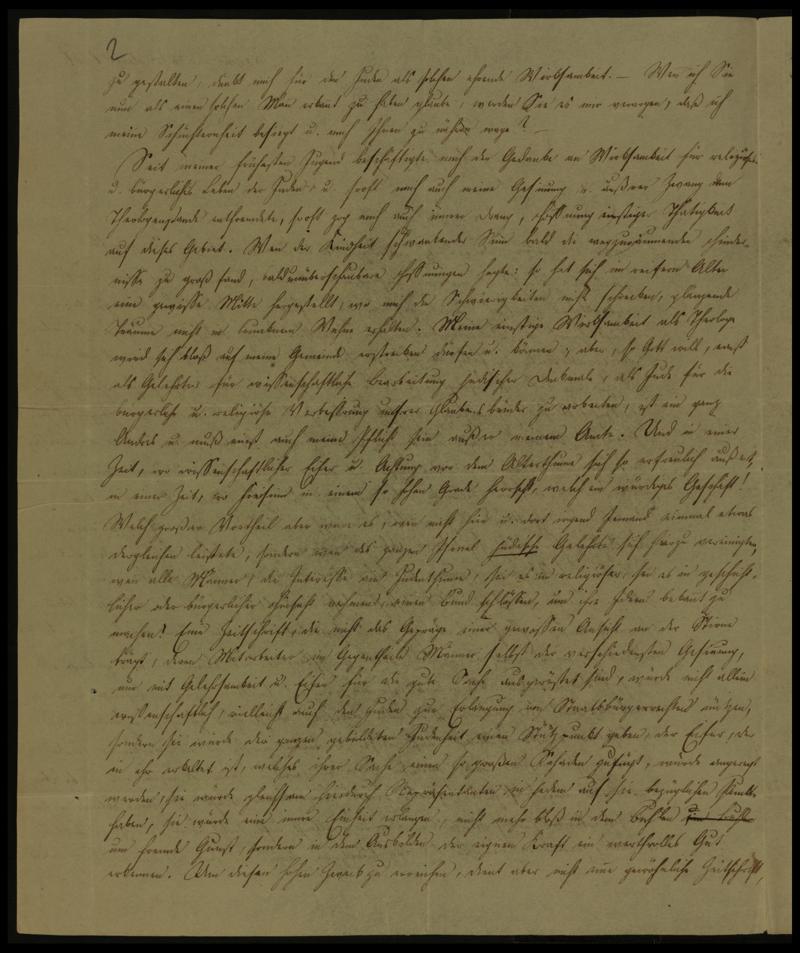 2
zu gestalten, dünkt mich für den Juden als solchen ehrende Wirksamkeit. — Wenn ich Sie
nun als einen solchen Mann erkannt zu haben glaube, werden Sie es mir verargen, daß ich
meine Schüchternheit besiegt u. mich Ihnen zu nähern wage? —
Seit meiner frühesten Jugend beschäftigte mich der Gedanke an Wirksamkeit für religiöses
u. bürgerliches Leben der Juden, u. so oft mich auch meine Gesinnung u. äußrer Zwang dem
Theologenstande entfremdete, so oft zog mich auch innrer Drang, Hoffnung einstiger Thätigkeit
auf dieses Gebiet. Wenn der Kindheit schwankender Sinn bald die wegzuräumenden Hinder-
nisse zu groß fand, bald unübersehbare Hoffnungen hegte: so hat sich im reifern Alter
eine gewisse Mitte hergestellt, wo mich die Schwierigkeiten nicht schrecken, glänzende
Träume nicht in Wahne erhalten. Meine einstige Wirksamkeit als Theologe
wird sich bloß auf meine Gemeinde erstrecken dürfen u. können, aber, so Gott will, einst
als Gelehrter für wissenschaftliche Bearbeitung jüdischer Denkmale, als Jude für die
bürgerliche u. religiöse Verbesserung unsrer Glaubensbrüder zu arbeiten, ist ein ganz
Andres u. muß einst auch meine Pflicht sein außer meinem Amte. Und in einer
Zeit, wo wissenschaftlicher Eifer u. Achtung vor dem Alterthume sich so erfreulich äußert,
in einer Zeit, wo Freisinn in einem so hohen Grade herrscht, welch ein würdiges Geschäft!
Welch großer Vortheil aber wäre es, wenn nicht hier u. dort irgend Jemand einmal etwas
dergleichen leistete, sondern wenn das ganze jüdische Gelehrte sich hierzu vereinigten,
wenn alle Männer, die Interesse am Judenthume, sei es in religiöser, sei es in geschicht-
licher oder bürgerlicher Hinsicht nehmen, einen Bund schlössen, um ihre Ideen bekannt zu
machen! Eine Zeitschrift, die nicht das Gepräge einer gewissen Ansicht an der Stirne
trägt, deren Mitarbeiter im Gegentheile Männer selbst der verschiedensten Gesinnung,
nur mit Gelehrsamkeit u. Eifer für die gute Sache ausgerüstet sind, würde nicht allein
wissenschaftlich, vielleicht auch den Juden zur Erlangung von Staatsbürgerrechten nützen,
sondern sie würde der ganzen gebildeten Judenheit einen Stützpunkt geben, der Eifer, der
in ihr erkaltet ist, welches ihrer Sache einen so großen Schaden zufügt, würde angeregt
werden, sie würde gleichsam hierdurch Repräsentanten in jedem auf sie bezüglichen
haben, sie würde eine innre Einheit erlangen, nicht mehr bloß in dem Buhlen
um fremde Gunst, sondern in dem Ausbilden der eignen Kraft ein werthvolles Gut
erkennen. Um diesen hohen Zweck zu erreichen, dient aber nicht eine gewöhnliche Zeitschrift,